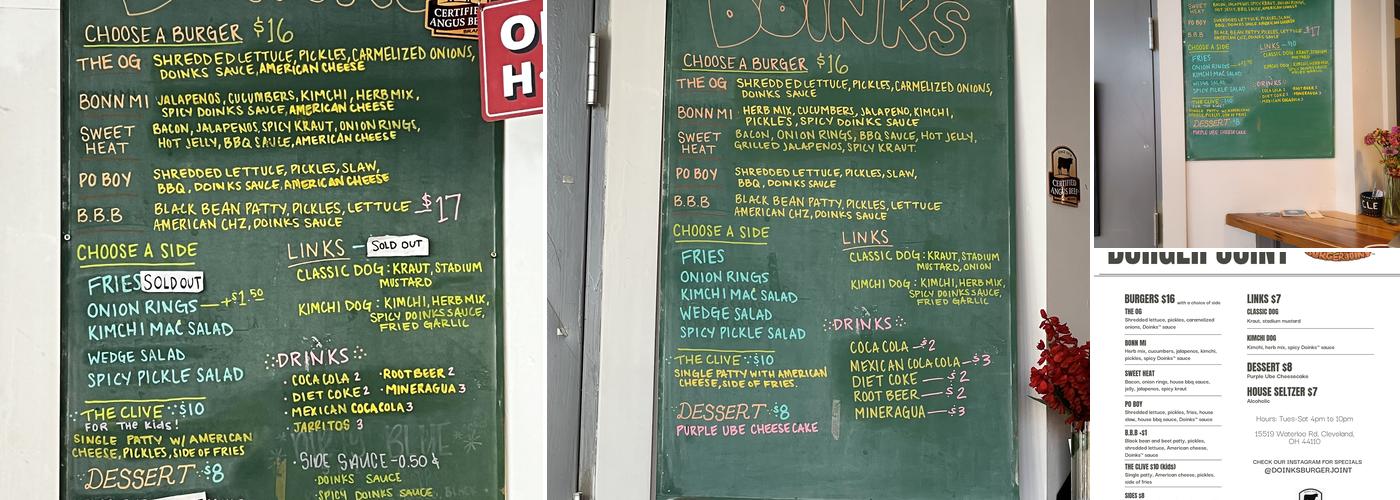 DOINKS
CERTIFIED
ANGUS BEEF
CHOOSE A BURGER $16
THE OG SHREDDED LETTUCE, PICKLES, CARMELIZED ONIONS,
DOINKS SAUCE, AMERICAN CHEESE
BONN MI JALAPENOS, CUCUMBERS, KIMCHI, HERB MIX,
SPICY DOINKS SAUCE, AMERICAN CHEESE
SWEET HEAT BACON, JALAPENOS, SPICY KRAUT, ONION RINGS,
HOT JELLY, BBQ SAUCE, AMERICAN CHEESE
PO BOY SHREDDED LETTUCE, PICKLES, SLAW,
BBQ, DOINKS SAUCE, AMERICAN CHEESE
B.B.B BLACK BEAN PATTY, PICKLES, LETTUCE $17
AMERICAN CHZ, DOINKS SAUCE
CHOOSE A SIDE
FRIES SOLD OUT
ONION RINGS —+$1.50
KIMCHI MAC SALAD
WEDGE SALAD
SPICY PICKLE SALAD
THE CLIVE $10
FOR THE KIDS!
SINGLE PATTY W/ AMERICAN
CHEESE, PICKLES, SIDE OF FRIES
DESSERT $8
LINKS — SOLD OUT
CLASSIC DOG: KRAUT, STADIUM
MUSTARD
KIMCHI DOG: KIMCHI, HERB MIX,
SPICY DOINKS SAUCE,
FRIED GARLIC
DRINKS
• COCA COLA 2 • ROOT BEER 2
• DIET COKE 2 • MINERAGUA 3
• MEXICAN COCA COLA 3
• JARRITOS 3
SIDE SAUCE -0.50¢
• DOINKS SAUCE
• SPICY DOINKS SAUCE
DOINKS
CHOOSE A BURGER $16
THE OG SHREDDED LETTUCE, PICKLES, CARMELIZED ONIONS,
DOINKS SAUCE
BONN MI HERB MIX, CUCUMBERS, JALAPENO, KIMCHI,
PICKLES, SPICY DOINKS SAUCE
SWEET HEAT BACON, ONION RINGS, BBQ SAUCE, HOT JELLY,
GRILLED JALAPENOS, SPICY KRAUT.
PO BOY SHREDDED LETTUCE, PICKLES, SLAW,
BBQ, DOINKS SAUCE
B.B.B BLACK BEAN PATTY, PICKLES, LETTUCE
AMERICAN CHZ, DOINKS SAUCE
CHOOSE A SIDE
FRIES
ONION RINGS
KIMCHI MAC SALAD
WEDGE SALAD
SPICY PICKLE SALAD
THE CLIVE $10
SINGLE PATTY WITH AMERICAN
CHEESE, SIDE OF FRIES.
DESSERT $8
PURPLE UBE CHEESECAKE
LINKS
CLASSIC DOG: KRAUT, STADIUM
MUSTARD, ONION
KIMCHI DOG: KIMCHI, HERB MIX,
SPICY DOINKS SAUCE,
FRIED GARLIC
DRINKS
COCA COLA —$2
MEXICAN COCA COLA —$3
DIET COKE —$2
ROOT BEER —$2
MINERAGUA —$3
CERTIFIED
ANGUS BEEF
SWEET HEAT
PO BOY SHREDDED LETTUCE, PICKLES, SLAW,
B.B.B BLACK BEAN PATTY, PICKLES, LETTUCE $17
CHOOSE A SIDE
FRIES
ONION RINGS
KIMCHI MAC SALAD
WEDGE SALAD
SPICY PICKLE SALAD
THE CLIVE $10
DESSERT $8
PURPLE UBE CHEESECAKE
LINKS
DRINKS
BURGER JOINT
BURGERS $16 with a choice of side
THE OG
Shredded lettuce, pickles, caramelized
onions, Doinks™ sauce
BONN MI
Herb mix, cucumbers, jalapenos, kimchi,
pickles, spicy Doinks™ sauce
SWEET HEAT
Bacon, onion rings, house bbq sauce,
jelly, jalapenos, spicy kraut
PO BOY
Shredded lettuce, pickles, fries, house
slaw, house bbq sauce, Doinks™ sauce
B.B.B +$1
Black bean and beet patty, pickles,
shredded lettuce, American cheese,
Doinks™ sauce
THE CLIVE $10 (kids)
Single patty, American cheese, pickles,
side of fries
SIDES $8
LINKS $7
CLASSIC DOG
Kraut, stadium mustard
KIMCHI DOG
Kimchi, herb mix, spicy Doinks™ sauce
DESSERT $8
Purple Ube Cheesecake
HOUSE SELTZER $7
Alcoholic
Hours: Tues-Sat 4pm to 10pm
15519 Waterloo Rd, Cleveland,
OH 44110
CHECK OUR INSTAGRAM FOR SPECIALS
@DOINKSBURGERJOINT